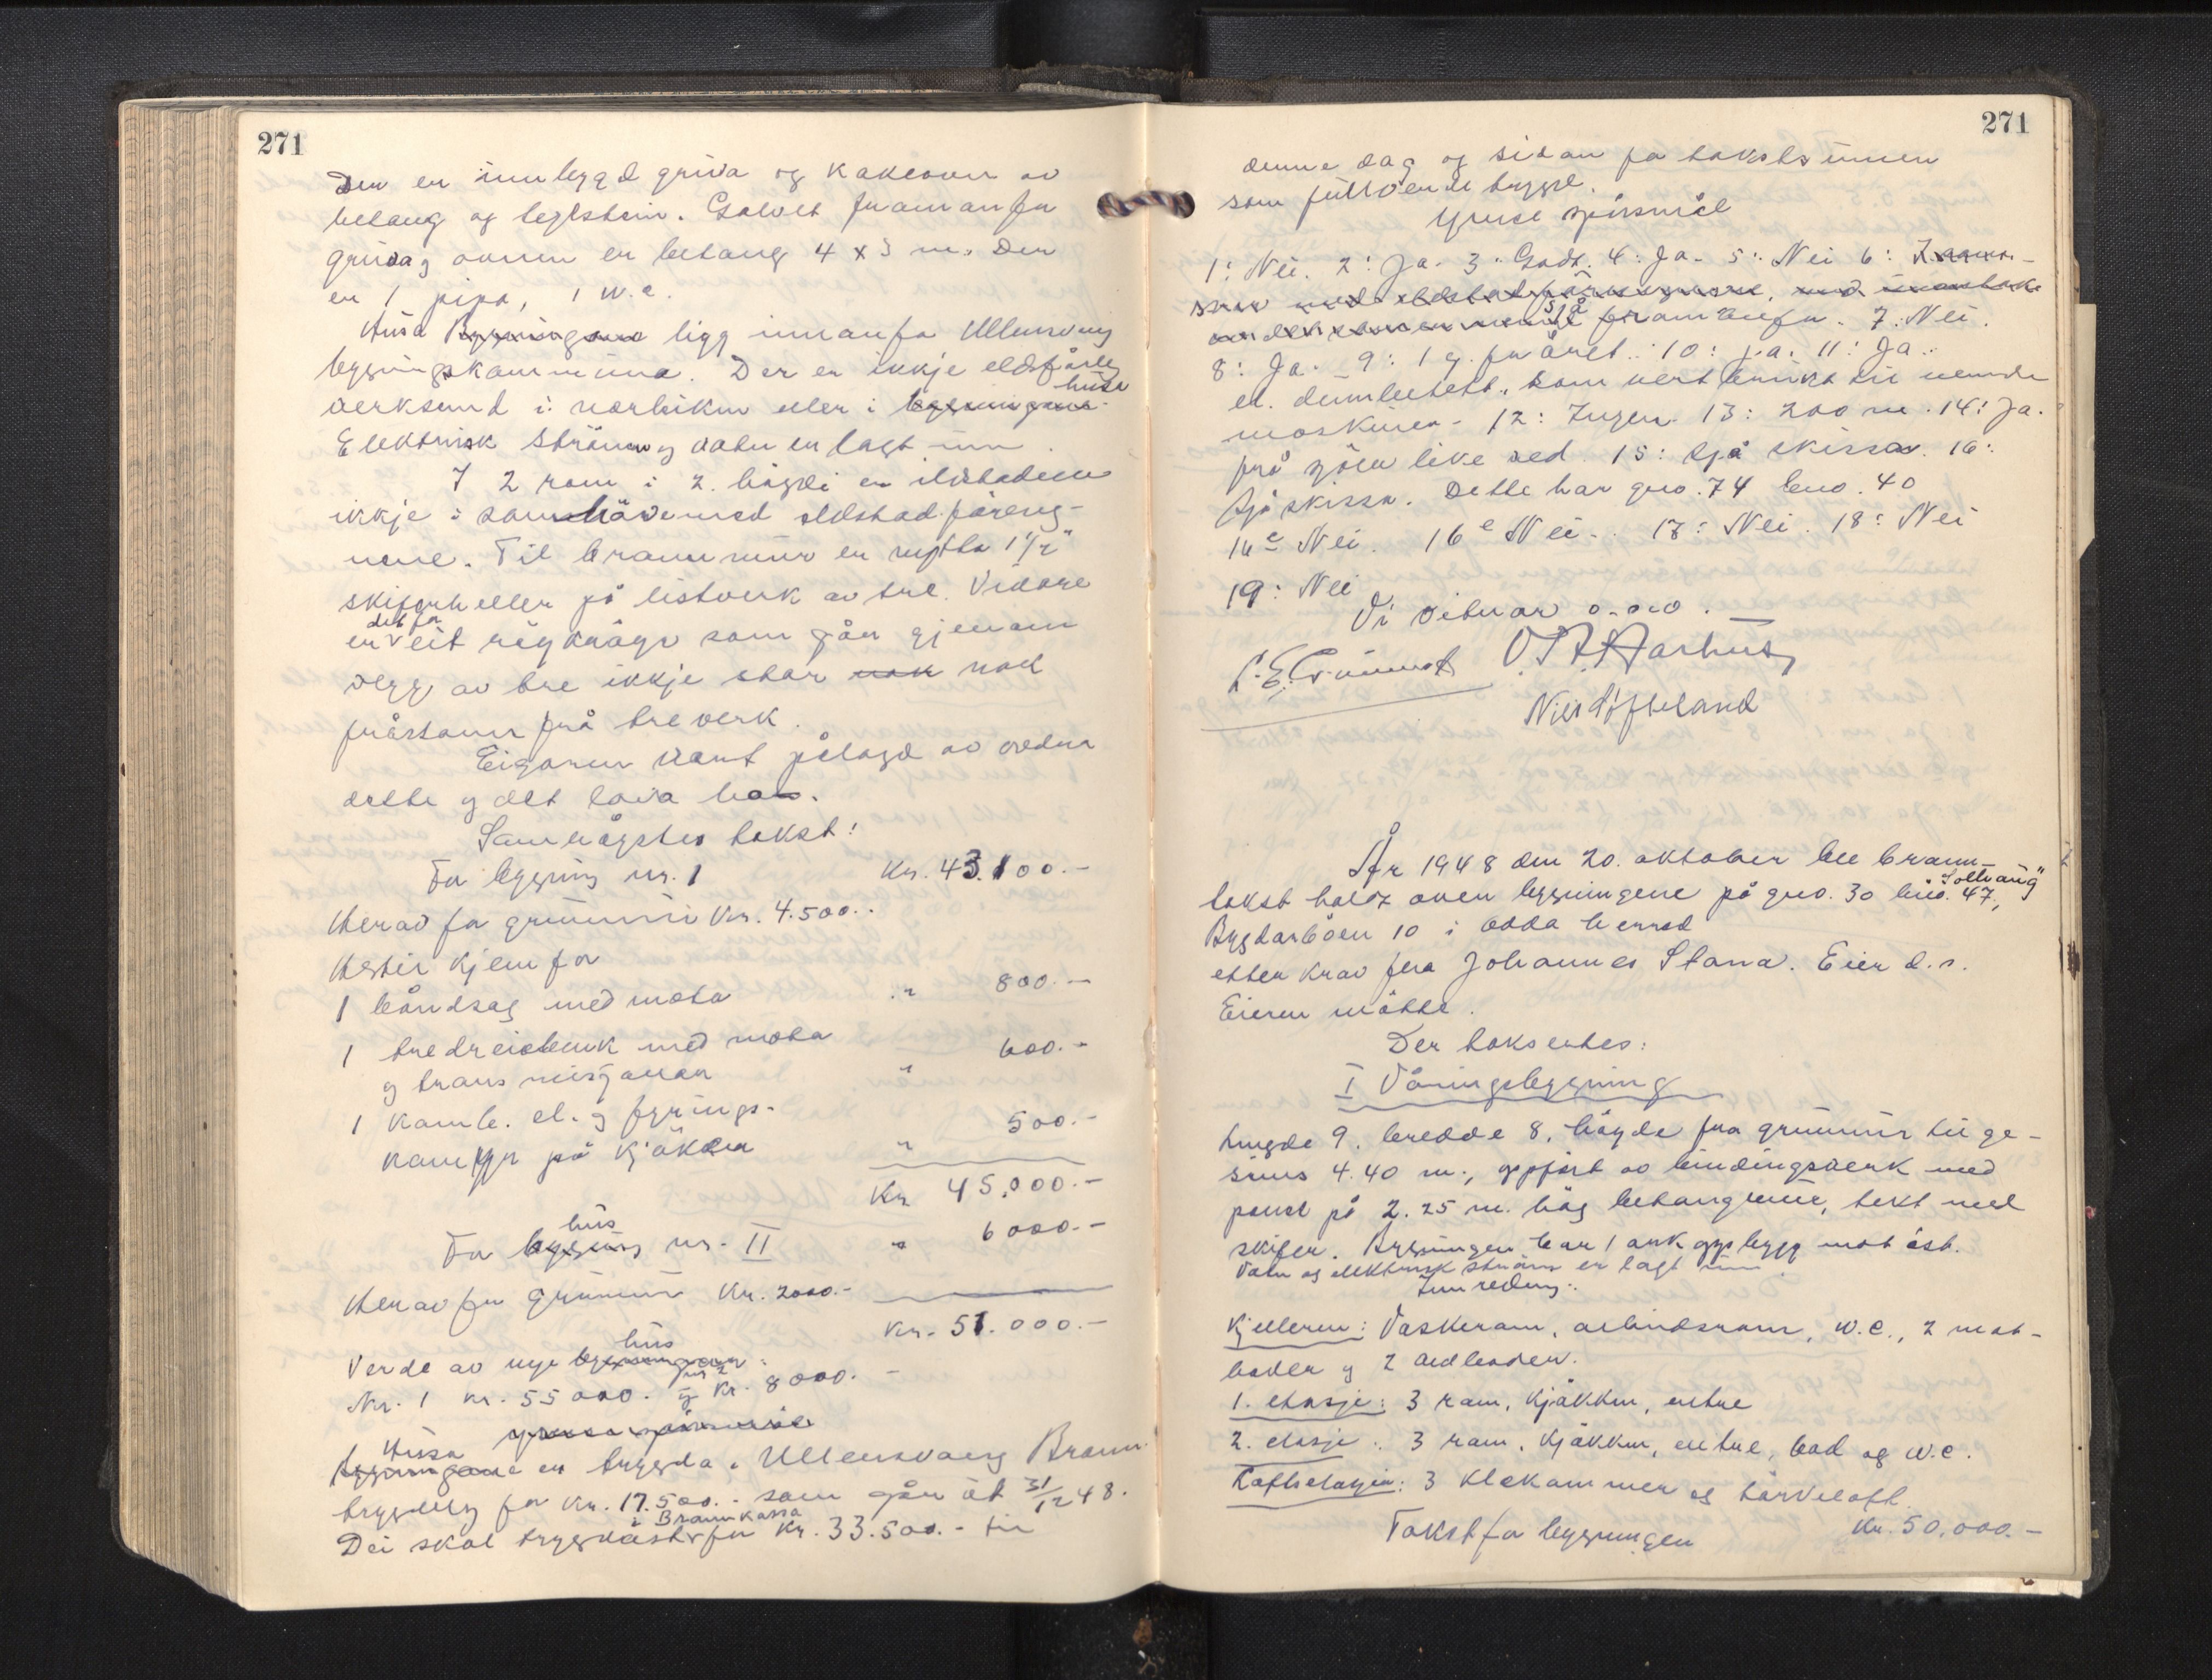 271
Der er innbygd gruva og kakeovn av
betong og teglstein. Golvet framanfor
gruva og ovnen er betong 4 x 3 m. Der
er 1 pipa, 1 w.c.
Husa Bygningane ligg innanfor Ullensvang
bygningskommuna. Der er ikkje eldsfårleg
verksemd i nærleiken eller i bygningane husa
Elektrisk straum og vatn er lagt inn.
I 2 rom i 2. högdi er ildstadene
ikkje i samhöve med eldstadföresegn-
nene. Til brannmur er nytta 1 1/2"
skiferheller på listverk av tre. Vidare
er det for eit röykrör som går gjenom
vegg av tre ikkje stor nok nod
fråstann frå treverk.
Eigaren vart pålagd av ordna
dette og det lova han.
Samhögstes takst:
For bygning nr. 1 Kr. 43.100.-
Herav for grunnmur Kr. 4.500.-
Hertil kjem for
1 båndsag med motor " 800.-
1 tredreiebenk med motor
og transmisjonar " 600.-
1 komb. el. og fyrings-
komfyr på kjökken " 500.-
Kr 45.000.-
For bygning hus nr. II " 6000.-
Herav for grunnmur Kr. 2000.-
Kr. 51.000.-
Verde av nye bygningar hus:
Nr. 1 kr. 55000. og nr 2 kr. 8000.-
Ymse spörsmål
Husa Bygningane er trygda i Ullensvang Brann-
trygdelag for kr. 17.500.- som går åt 31/12 48.
Dei skal trygdast i Brannkassa for Kr. 33.500.- til
271
denne dag og sidan for takstsummen
som fullverdi trygd.
Ymse spörsmål
1: Nei. 2: Ja. 3: Godt. 4: Ja. 5: Nei 6:
sjå framanfor. 7: Nei.
8: Ja. 9: 1 g. for året. 10: ja. 11: Ja.
el. som vert brukt til nemnde
maskiner. 12: Ingen. 13: 200 m. 14: Ja.
frå sjöen like ved. 15: Sjå skissa. 16:
Sjå skissa. Dette har gno. 74 bno. 40
16c Nei. 16e Nei. 17: Nei. 18: Nei
19: Nei
Vi vitnar o.s.v.
O. A. Aarhus
Nils Tjoflaand
År 1948 den 20. oktober ble brann-
takst holdt over bygningene på gno. 30 bno. 47, "Soltvang"
Bygdarbøen 10 i Odda herred
etter krav fra Johannes Stana. Eier d.s.
Eieren møtte.
Der takserttes:
I Våningsbygning
Lengde 9. bredde 8, höyde fra grunnmur til ge-
sims 4.40 m., oppfört av bindingsverk med
panel på 2.25 m. höy betongmur, tekt med
skifer. Bygningen har 1 ark oppbygg mot öst.
Vatn og elektrisk ström er lagt inn.
Innredning:
Kjelleren: Vaskerom, arbeidsrom, w.c., 2 mat-
boder og 2 vedboder.
1. etasje: 3 rom, kjøkken, entre
2. etasje: 3 rom, kjøkken, entre, bad og w.c.
Loftsetasjen: 3 klekammer og törkeloft.
Takst for bygningen Kr. 50.000.-